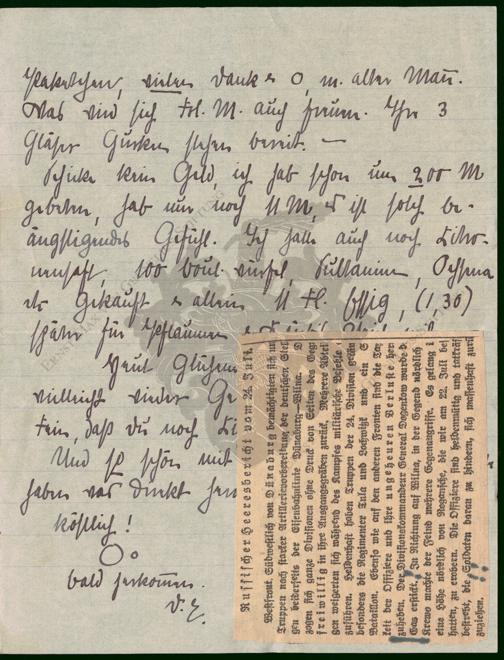 Paketchen, vielen Dank & O, m. alter Mann.
Was wird sich Frl. M. auch freun. Ihr 3
Gläser Gurken stehen bereit. —
Schicke kein Geld, ich hab schon um 200 M
gebeten, hab nur noch 11 M, & ist solch be-
ängstigendes Gefühl. Ich hatte auch noch
100 Boul. würfel, Sultaninen, Ochsena
etc gekauft & allein 11 Fl. Essig, (1,30)
später für Pflaumen &
Heut
vielleicht wieder
fein, daß du noch
Und so schön mit
haben was
köstlich!
bald
D. E.
Russischer Heeresbericht vom 24. Juli.
Westfront. Südwestlich von Dünaburg bemächtigten sich un
Truppen nach starker Artillerievorbereitung der deutschen Stel
gen beiderseits der Eisenbahnlinie Dünaburg—Wilna. D
zogen sich ganze Divisionen ohne Druck von Seiten des Geg
freiwillig in ihre Ausgangsgräben zurück. Mehrere Abteil
gen weigerten sich während des Kampfes, militärische Befehle
zuführen. Heldenhaft haben Truppen der 24. Division gekäm
besonders die Regimenter Tula und Lochwitz und ein S
Bataillon. Ebenso wie auf den anderen Fronten sind die Tap
keit der Offiziere und ihre ungeheuren Verluste her
zuheben. Der Divisionskommandeur General Dogenkow wurde d
Gas erstickt. In Richtung auf Wilna, in der Gegend nördlich
Krewo machte der Feind mehrere Gegenangriffe. Es gelang i
eine Höhe nördlich von Bogansche, die wir am 22. Juli bes
hatten, zu erobern. Die Offiziere sind heldenmütig und tatkräf
bestrebt, die Soldaten daran zu hindern, sich massenhaft zurü
zuziehen.